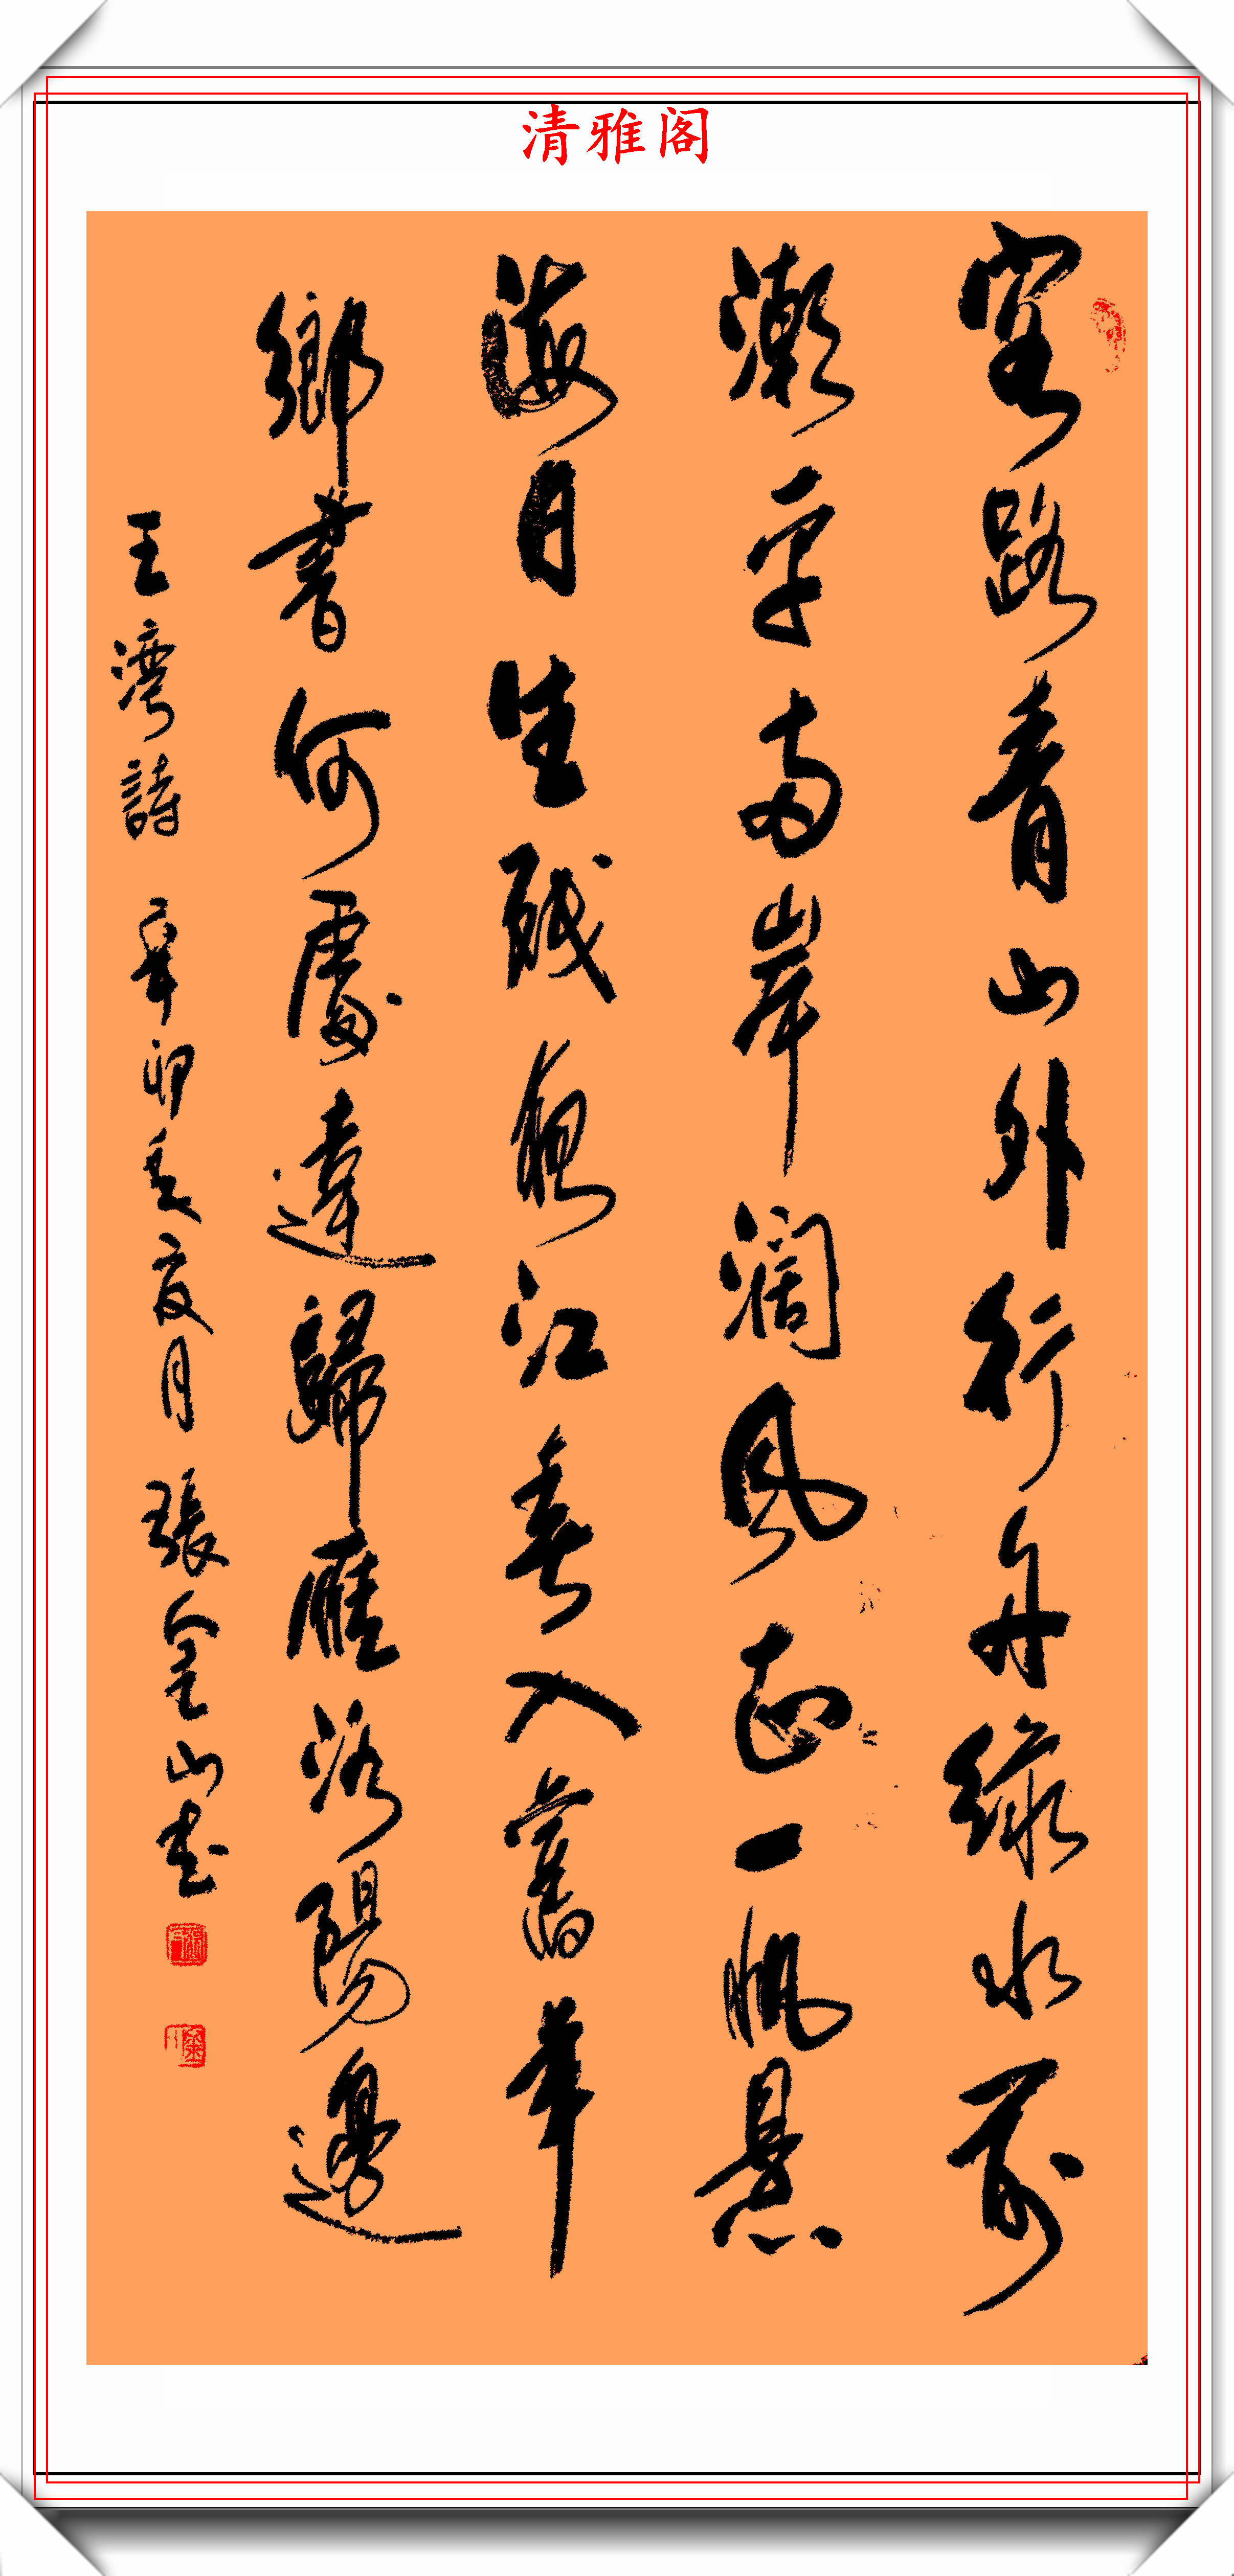 清雅阁
客路青山外行舟綠水前
潮平兩岸濶風正一帆懸
海日生殘夜江春入舊年
鄉書何處達歸雁洛陽邊
王灣詩 辛卯夏月 張金山書